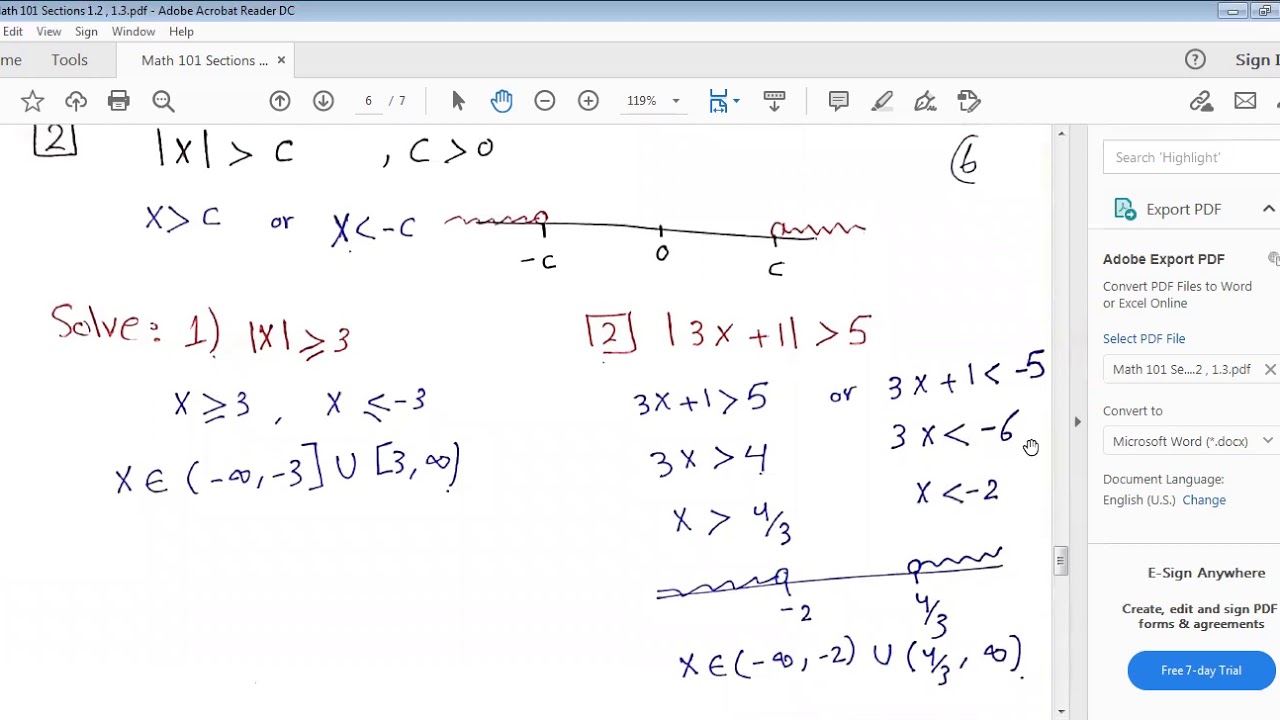 ath 101 Sections 1.2 , 1.3.pdf - Adobe Acrobat Reader DC
Edit View Sign Window Help
me Tools Math 101 Sections ... × ? Sign I
6 / 7 119%
[2] |x| > c , c > 0 (6
x > c or x < -c
-c 0 c
Solve: 1) |x| ≥ 3
x ≥ 3 , x ≤ -3
x ∈ (-∞, -3] ∪ [3, ∞)
[2] |3x + 1| > 5
3x + 1 > 5 or 3x + 1 < -5
3x > 4 3x < -6
x > 4/3 x < -2
-2 4/3
x ∈ (-∞, -2) ∪ (4/3, ∞).
Search 'Highlight'
Export PDF
Adobe Export PDF
Convert PDF Files to Word
or Excel Online
Select PDF File
Math 101 Se....2 , 1.3.pdf ×
Convert to
Microsoft Word (*.docx)
Document Language:
English (U.S.) Change
E-Sign Anywhere
Create, edit and sign PDF
forms & agreements
Free 7-day Trial